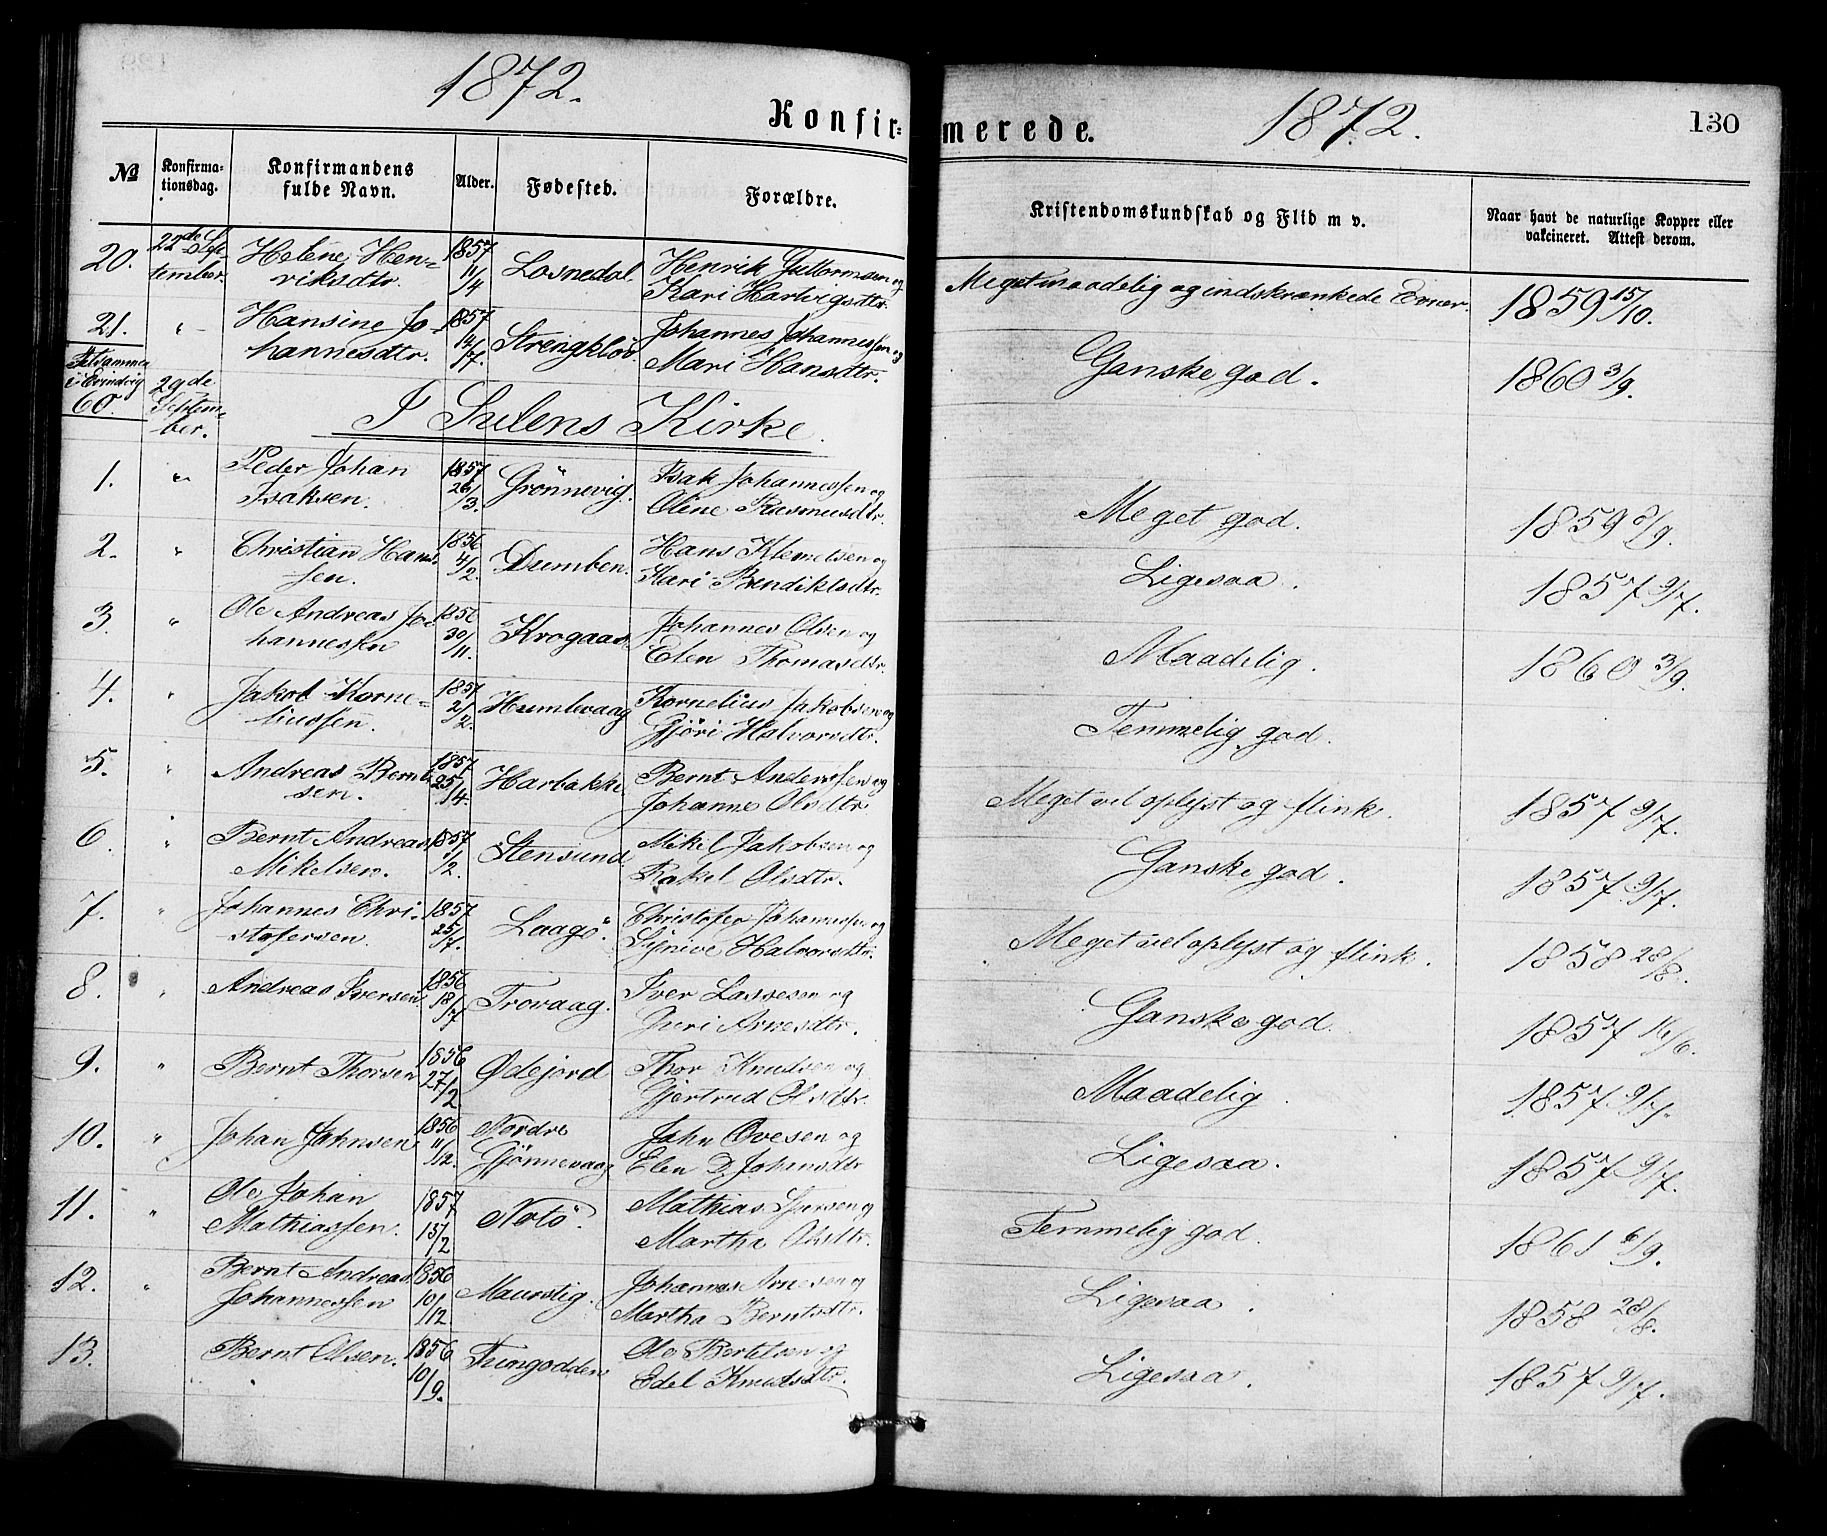 1872.
Konfir=
merede.
1872.
130
No
Konfirma-
tionsdag.
Konfirmandens
fulde Navn.
Alder.
Fødested.
Forældre.
Kristendomskundskab og Flid m v.
Naar havt de naturlige Kopper eller
vakcineret. Attest derom.
20. 22de Sep-
tember. Helene Hen-
riksdtr. 1857 11/4 Losnedal Henrik Guttormsen og
Kari Hartvigsdtr. Meget maadelig og indskrænkede Evner. 1859 15/10.
21. " Hansine Jo-
hannesdtr. 1857 14/7. Strengklöv. Johannes Johannessen og
Mari Hansdtr. Ganske god. 1860 3/9.
Tilsammen
i Evindvig
60.
29de
Septem-
ber.
I Sulens Kirke.
1. " Peder Johan
Isaksen. 1857 26/3. Grönnevig. Isak Johannessen og
Oline Rasmusdtr. Meget god. 1859 8/9.
2. " Christian Han-
sen. 1856 4/2. Dumben. Hans Klemetsen og
Kari Bendiktsdtr. Ligesaa. 1857 9/7.
3. " Ole Andreas Jo-
hannessen 1856 30/11. Krogaas Johannes Olsen og
Elen Thomasdtr. Maadelig. 1860 3/9.
4. " Jakob Korne-
liussen. 1857 2/2. Humlevaag Kornelius Jakobsen og
Gjöri Halvorsdtr. Temmelig god.
5. " Andreas Bernt-
sen. 1857 25/4. Harbakke Bernt Anderssen og
Johanne Olsdtr. Meget vel oplyst og flink. 1857 9/7.
6. " Bernt Andreas
Mikelsen. 1857 /2. Stensund Mikel Jakobsen og
Rakel Olsdtr. Ganske god. 1857 9/7.
7. " Johannes Chri-
stofersen. 1857 25/7. Laagö. Christofer Johannessen og
Synive Halvorsdtr. Meget vel oplyst og flink. 1858 28/8.
8. " Andreas Iversen 1856 18/7 Trovaag. Iver Lassesen og
Guri Arnesdtr. Ganske god. 1857 /6.
9. " Bernt Thorsen 1856 27/2 Ødejord Thor Knudsen og
Gjertrud Olsdtr. Maadelig. 1857 9/7.
10. " Johan Johnsen 1856 11/12. Nordre
Gjönnevaag John Ovesen og
Elen D. Johansdtr. Ligesaa. 1857 9/7.
11. " Ole Johan
Mathiassen. 1857 15/2 Notö. Mathias Iversen og
Martha Olsdtr. Temmelig god. 1861 6/9.
12. " Bernt Andreas
Johannessen 1856 10/12. Maurstig. Johannes Arnesen og
Martha Berntsdtr. Ligesaa. 1858 28/8.
13. Bernt Olsen. 1856 10/9. Tungodden Ole Bertelsen og
Edel Knudsdtr. Ligesaa. 1857 9/7.